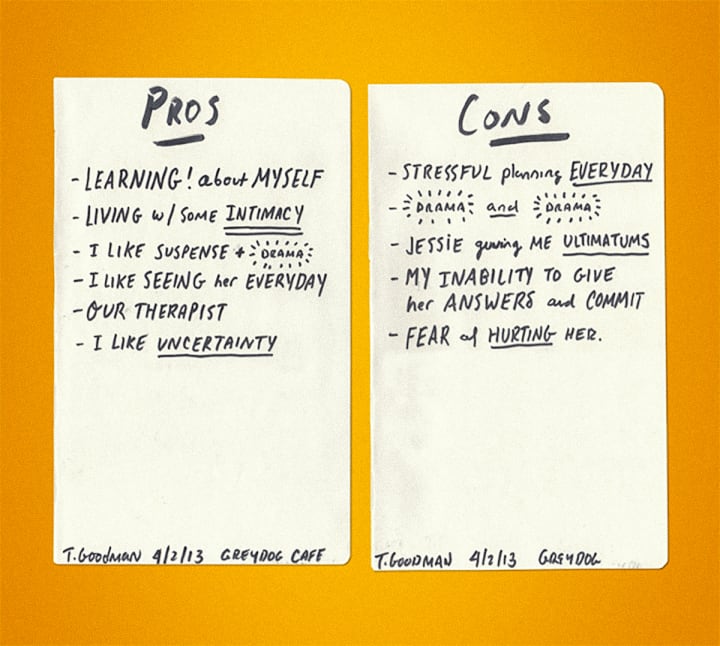 PROS
- LEARNING! about MYSELF
- LIVING w/ some INTIMACY
- I LIKE SUSPENSE + DRAMA
- I LIKE SEEING her EVERYDAY
- OUR THERAPIST
- I LIKE UNCERTAINTY
T.GOODMAN 4/2/13 GREYDOG CAFE
CONS
- STRESSFUL planning EVERYDAY
- DRAMA and DRAMA
- JESSIE giving ME ULTIMATUMS
- MY INABILITY TO GIVE
her ANSWERS and COMMIT
- FEAR of HURTING HER.
T.GOODMAN 4/2/13 GREYDOG